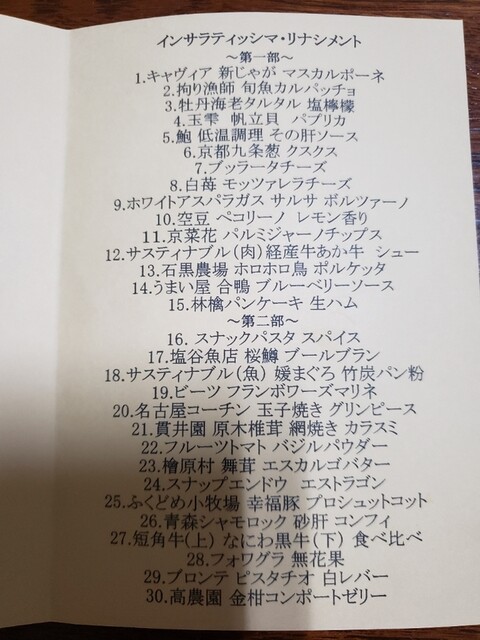 インサラティッシマ・リナシメント
～第一部～
1.キャヴィア 新じゃが マスカルポーネ
2.拘り漁師 旬魚カルパッチョ
3.牡丹海老タルタル 塩檸檬
4.玉雫 帆立貝 パプリカ
5.鮑 低温調理 その肝ソース
6.京都九条葱 クスクス
7.ブッラータチーズ
8.白苺 モッツァレラチーズ
9.ホワイトアスパラガス サルサ ボルツァーノ
10.空豆 ペコリーノ レモン香り
11.京菜花 パルミジャーノチップス
12.サスティナブル(肉)経産牛あか牛 シュー
13.石黒農場 ホロホロ鳥 ポルケッタ
14.うまい屋 合鴨 ブルーベリーソース
15.林檎パンケーキ 生ハム
～第二部～
16. スナックパスタ スパイス
17.塩谷魚店 桜鱒 ブールブラン
18.サスティナブル(魚) 媛まぐろ 竹炭パン粉
19.ビーツ フランボワーズマリネ
20.名古屋コーチン 玉子焼き グリンピース
21.貫井園 原木椎茸 網焼き カラスミ
22.フルーツトマト バジルパウダー
23.檜原村 舞茸 エスカルゴバター
24.スナップエンドウ エストラゴン
25.ふくどめ小牧場 幸福豚 プロシュットコット
26.青森シャモロック 砂肝 コンフィ
27.短角牛(上) なにわ黒牛(下) 食べ比べ
28.フォワグラ 無花果
29.ブロンテ ピスタチオ 白レバー
30.高農園 金柑コンポートゼリー